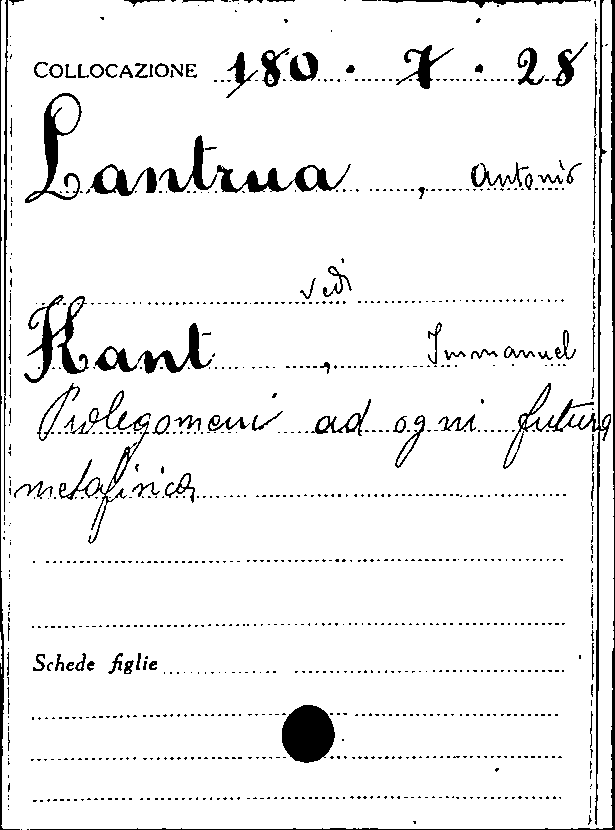 COLLOCAZIONE 180. 7. 28
Lantrua, Antonio
vedi
Kant, Immanuel
Prolegomeni ad ogni futura
metafisica
Schede figlie